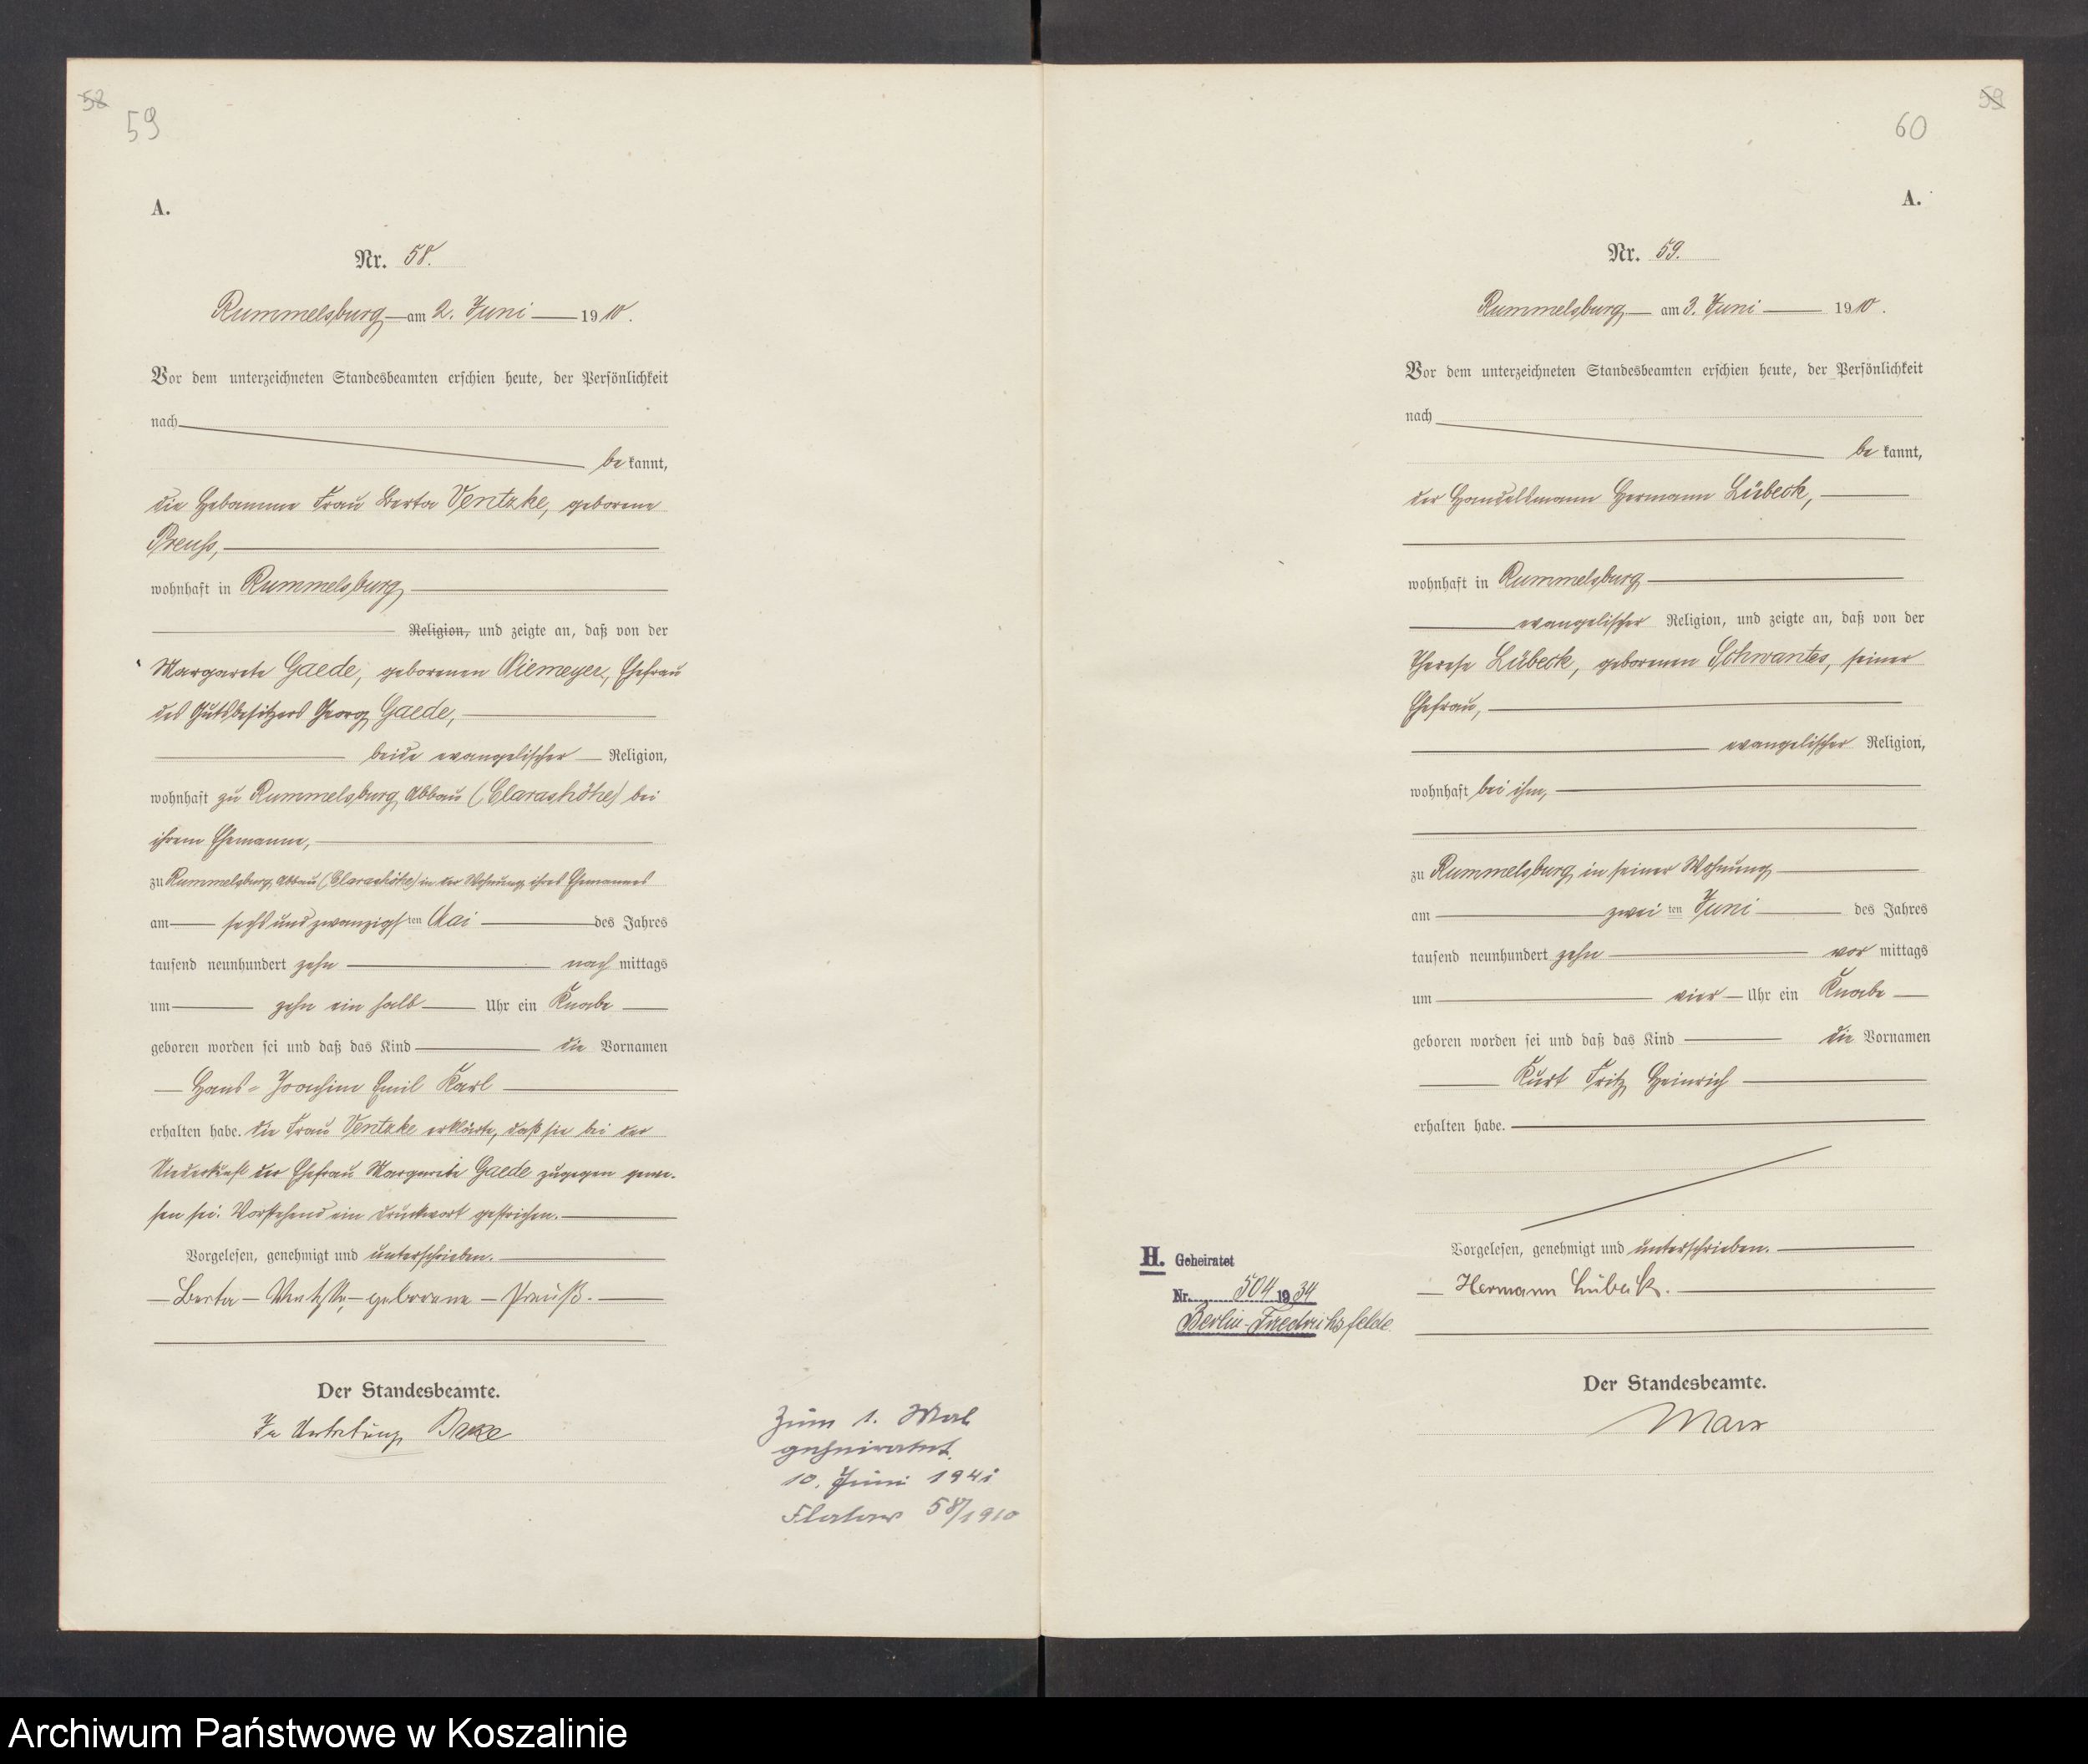 58
59
A.
Nr. 58.
Rummelsburg am 2. Juni 1910.
Vor dem unterzeichneten Standesbeamten erschien heute, der Persönlichkeit
nach
bekannt,
die Hebamme Frau Berta Ventzke, geborene
Preuß,
wohnhaft in Rummelsburg
Religion, und zeigte an, daß von der
Margarete Gaede, geborenen Niemeyer, Ehefrau
des Gutsbesitzers Georg Gaede,
beide evangelischer Religion,
wohnhaft zu Rummelsburg Abbau (Clarashöhe) bei
ihrem Ehemanne,
zu Rummelsburg Abbau (Clarashöhe) in der Wohnung ihres Ehemannes
am sechsundzwanzigsten Mai des Jahres
tausend neunhundert zehn nachmittags
um zehn ein halb Uhr ein Knabe
geboren worden sei und daß das Kind die Vornamen
Hans-Joachim Emil Karl
erhalten habe. Die Frau Ventzke erklärte, daß sie bei der
Niederkunft der Ehefrau Margarete Gaede zugegen gewe-
sen sei. Vorstehend ein Druckwort gestrichen.
Vorgelesen, genehmigt und unterschrieben.
Berta Ventzke geborene Preuß.
Der Standesbeamte.
In Vertretung
Zum 1. Mal
geheiratet
10. Juni 1941
Flatow 58/1910
59
60
A.
Nr. 59.
Rummelsburg am 3. Juni 1910.
Vor dem unterzeichneten Standesbeamten erschien heute, der Persönlichkeit
nach
bekannt,
der Handelsmann Hermann Lübeck,
wohnhaft in Rummelsburg
evangelischer Religion, und zeigte an, daß von der
Therese Lübeck, geborenen Schwantes, seiner
Ehefrau,
evangelischer Religion,
wohnhaft bei ihm,
zu Rummelsburg in seiner Wohnung
am zweiten Juni des Jahres
tausend neunhundert zehn vormittags
um vier Uhr ein Knabe
geboren worden sei und daß das Kind die Vornamen
Kurt Fritz Heinrich
erhalten habe.
Vorgelesen, genehmigt und unterschrieben.
Hermann Lübeck.
Der Standesbeamte.
Marx
H. Geheiratet
Nr. 504 1934
Berlin-Friedrichsfelde
Archiwum Państwowe w Koszalinie